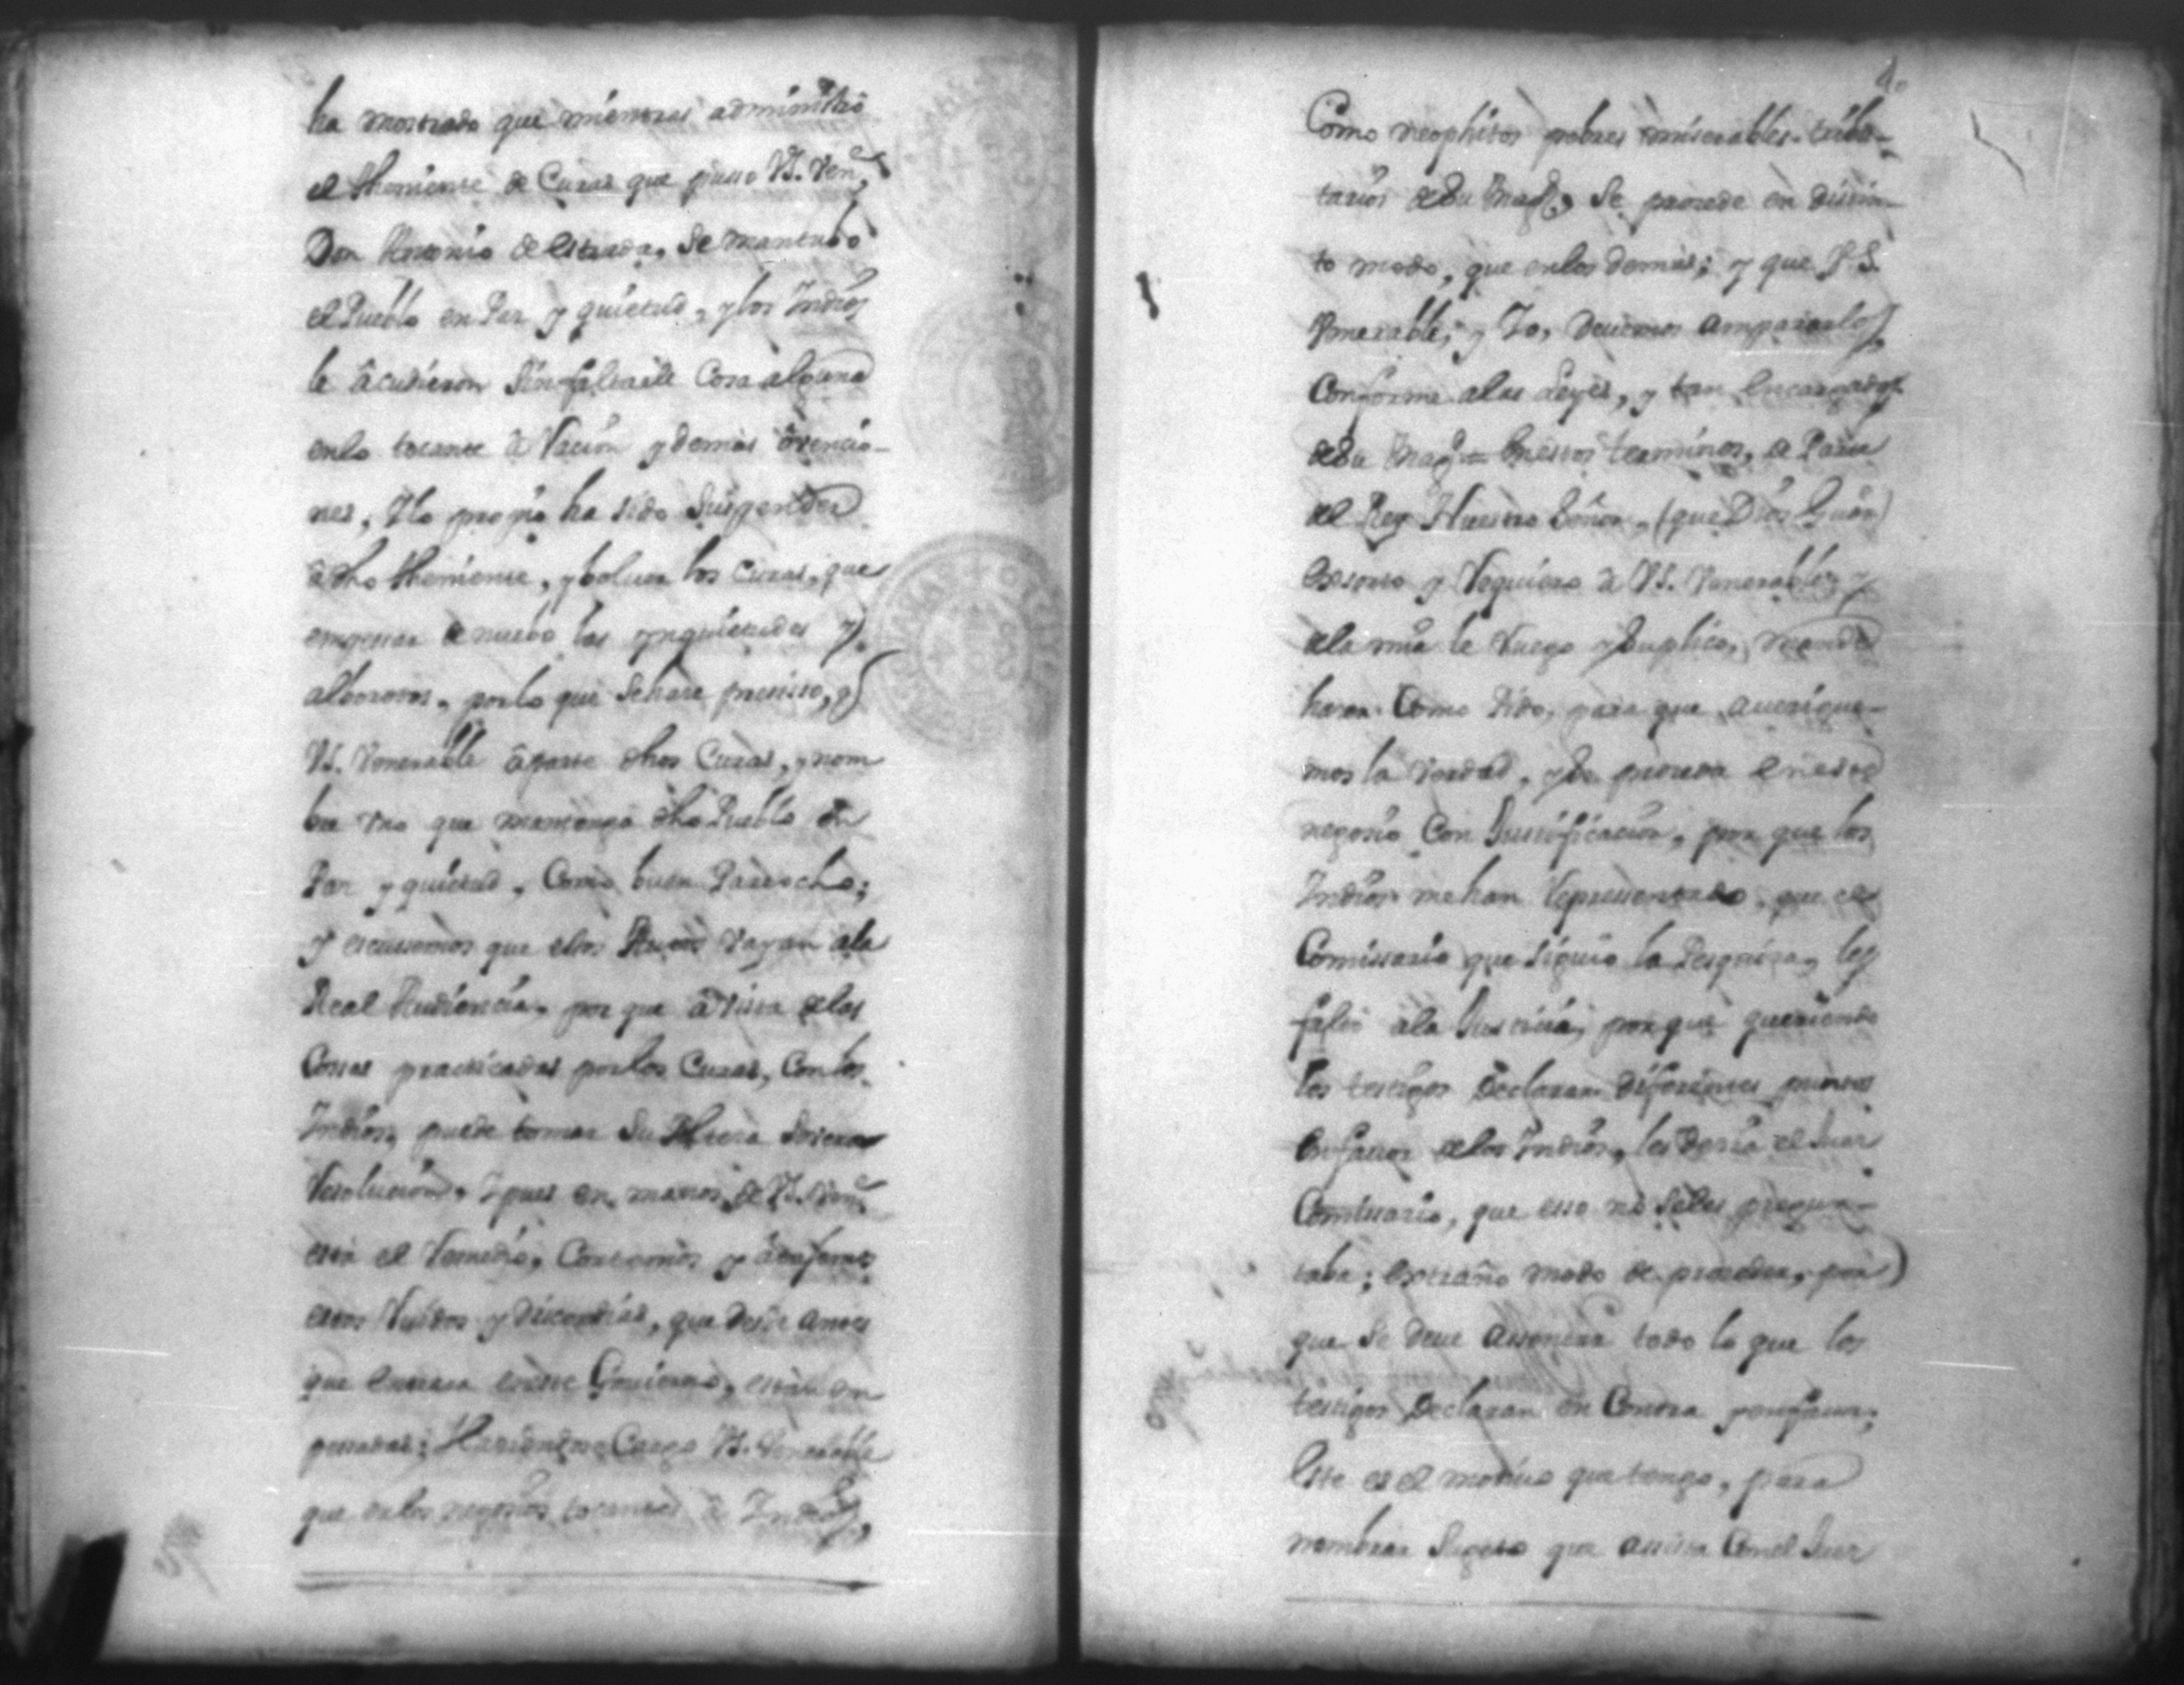 ha mostrado que mientras administró
el Theniente de Curas que pusso VS. Ven.e
Don Antonio de Estrada, se mantubo
el Pueblo en Paz y quietud, y los Indios
le acudieron sin faltarle Cosa alguna
en lo tocante à Racion y demas Orencio-
nes, Ylo propio ha sido suspender
à dho Theniente, y bolver los Curas, que
empesar de nuebo las ynquietudes y
alborotos, por lo que se hace presisso, q
VS. Venerable àparte dhos Curas, y nom
bre Vno que mantenga dho Pueblo en
Paz y quietud, Como buen Parrocho;
y escussemos que ellos vayan ala
Real Audiencia, por que à vista delas
Cossas practicadas por los Curas, Con los
Indios, puede tomar Su Alteza Severa
Resolucion, Y pues en manos de VS. Ven.e
esta el Remedio, Cortemos y
estos Ruidos y discordias, que desde antes
que entrara eneste Govierno, estàn em
pesadas; Hasiendose Cargo VS. Venerable
que en los negosios tocantes à Indios,
Como neophitos pobres miserables tribu-
tarios de Su Mag.d, Se procede en distin-
to modo, que en los demas; y que V S.
Venerable, y Yo, devemos ampararlos
Conforme alas Leyes, y tan encargados
de Su Mag.d = En estos terminos, de Parte
del Rey Nuestro Señor, (que Dios Gûe)
Exsorto y Requiero à VS. Venerable, y
dela mia le Ruego y Suplico, mande
haser Como Pido, para que averigue-
mos la Verdad, y Se proceda en este
negosio Con Justificacion, por que los
Indios me han Representado, que el
Comissario que siguio la Pesquisa, les
faltó ala Justicia, porque queriendo
los testigos Declarar diferentes puntos
En favor delos Indios, les decia el Juez
Comissario, que esso no Seles pregun-
taba; Extraño modo de proceder, por
que Se deve assentar todo lo que los
testigos Declaran en Contra y en favor;
Este es el motivo que tengo, para
nombrar Sugeto que assista Con el Juez